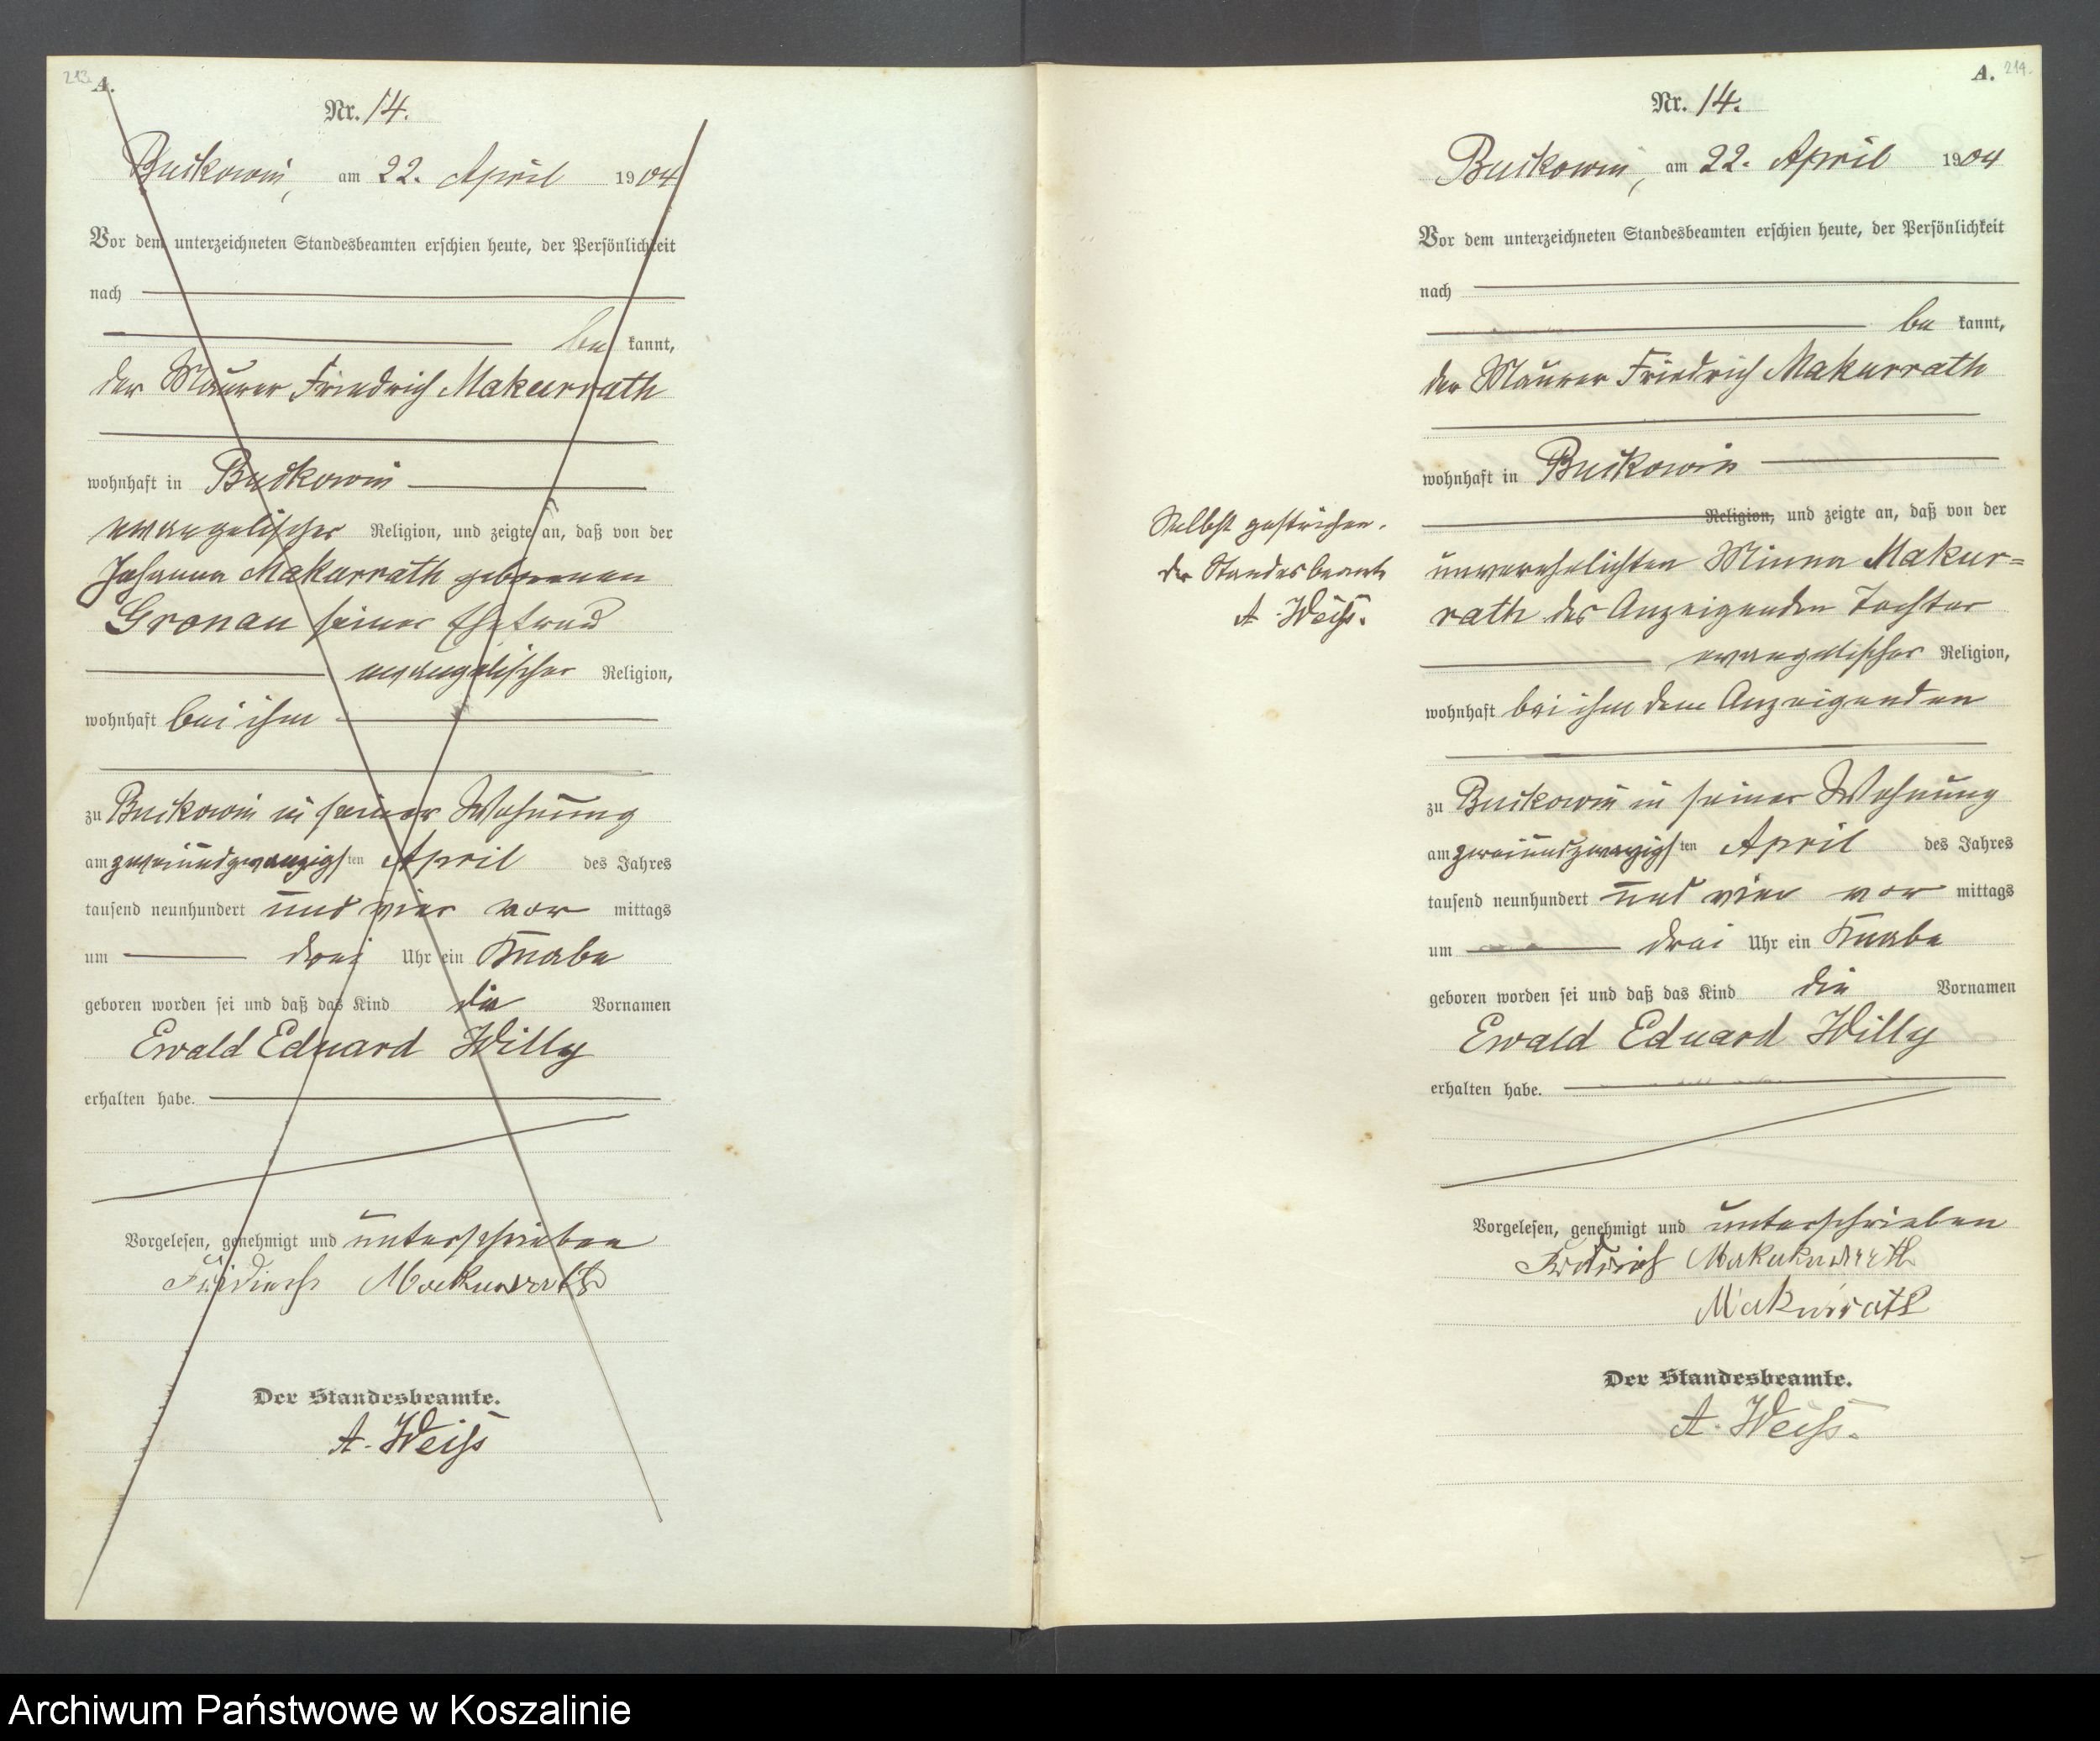 213.
A.
Nr. 14.
Buckowin, am 22. April 1904
Vor dem unterzeichneten Standesbeamten erschien heute, der Persönlichkeit
nach
be kannt,
der Maurer Friedrich Makurrath
wohnhaft in Buckowin
evangelischer Religion, und zeigte an, daß von der
Johanna Makurrath geborenen
Gronau seiner Ehefrau
evangelischer Religion,
wohnhaft bei ihm
zu Buckowin in seiner Wohnung
am zweiundzwanzigsten April des Jahres
tausend neunhundert und vier vor mittags
um drei Uhr ein Knabe
geboren worden sei und daß das Kind die Vornamen
Ewald Eduard Willy
erhalten habe.
Vorgelesen, genehmigt und unterschrieben
Friedrich Makurrath
Der Standesbeamte.
A. Weiß
A. 214.
Nr. 14.
Buckowin, am 22. April 1904
Vor dem unterzeichneten Standesbeamten erschien heute, der Persönlichkeit
nach
be kannt,
der Maurer Friedrich Makurrath
wohnhaft in Buckowin
Religion, und zeigte an, daß von der
Selbst gestrichen.
der Standesbeamte
A. Weiß.
unverehelichten Minna Makur=
rath des Anzeigenden Tochter
evangelischer Religion,
wohnhaft bei ihm dem Anzeigenden
zu Buckowin in seiner Wohnung
am zweiundzwanzigsten April des Jahres
tausend neunhundert und vier vor mittags
um drei Uhr ein Knabe
geboren worden sei und daß das Kind die Vornamen
Ewald Eduard Willy
erhalten habe.
Vorgelesen, genehmigt und unterschrieben
Friedrich
Makurrath
Der Standesbeamte.
A. Weiß.
Archiwum Państwowe w Koszalinie